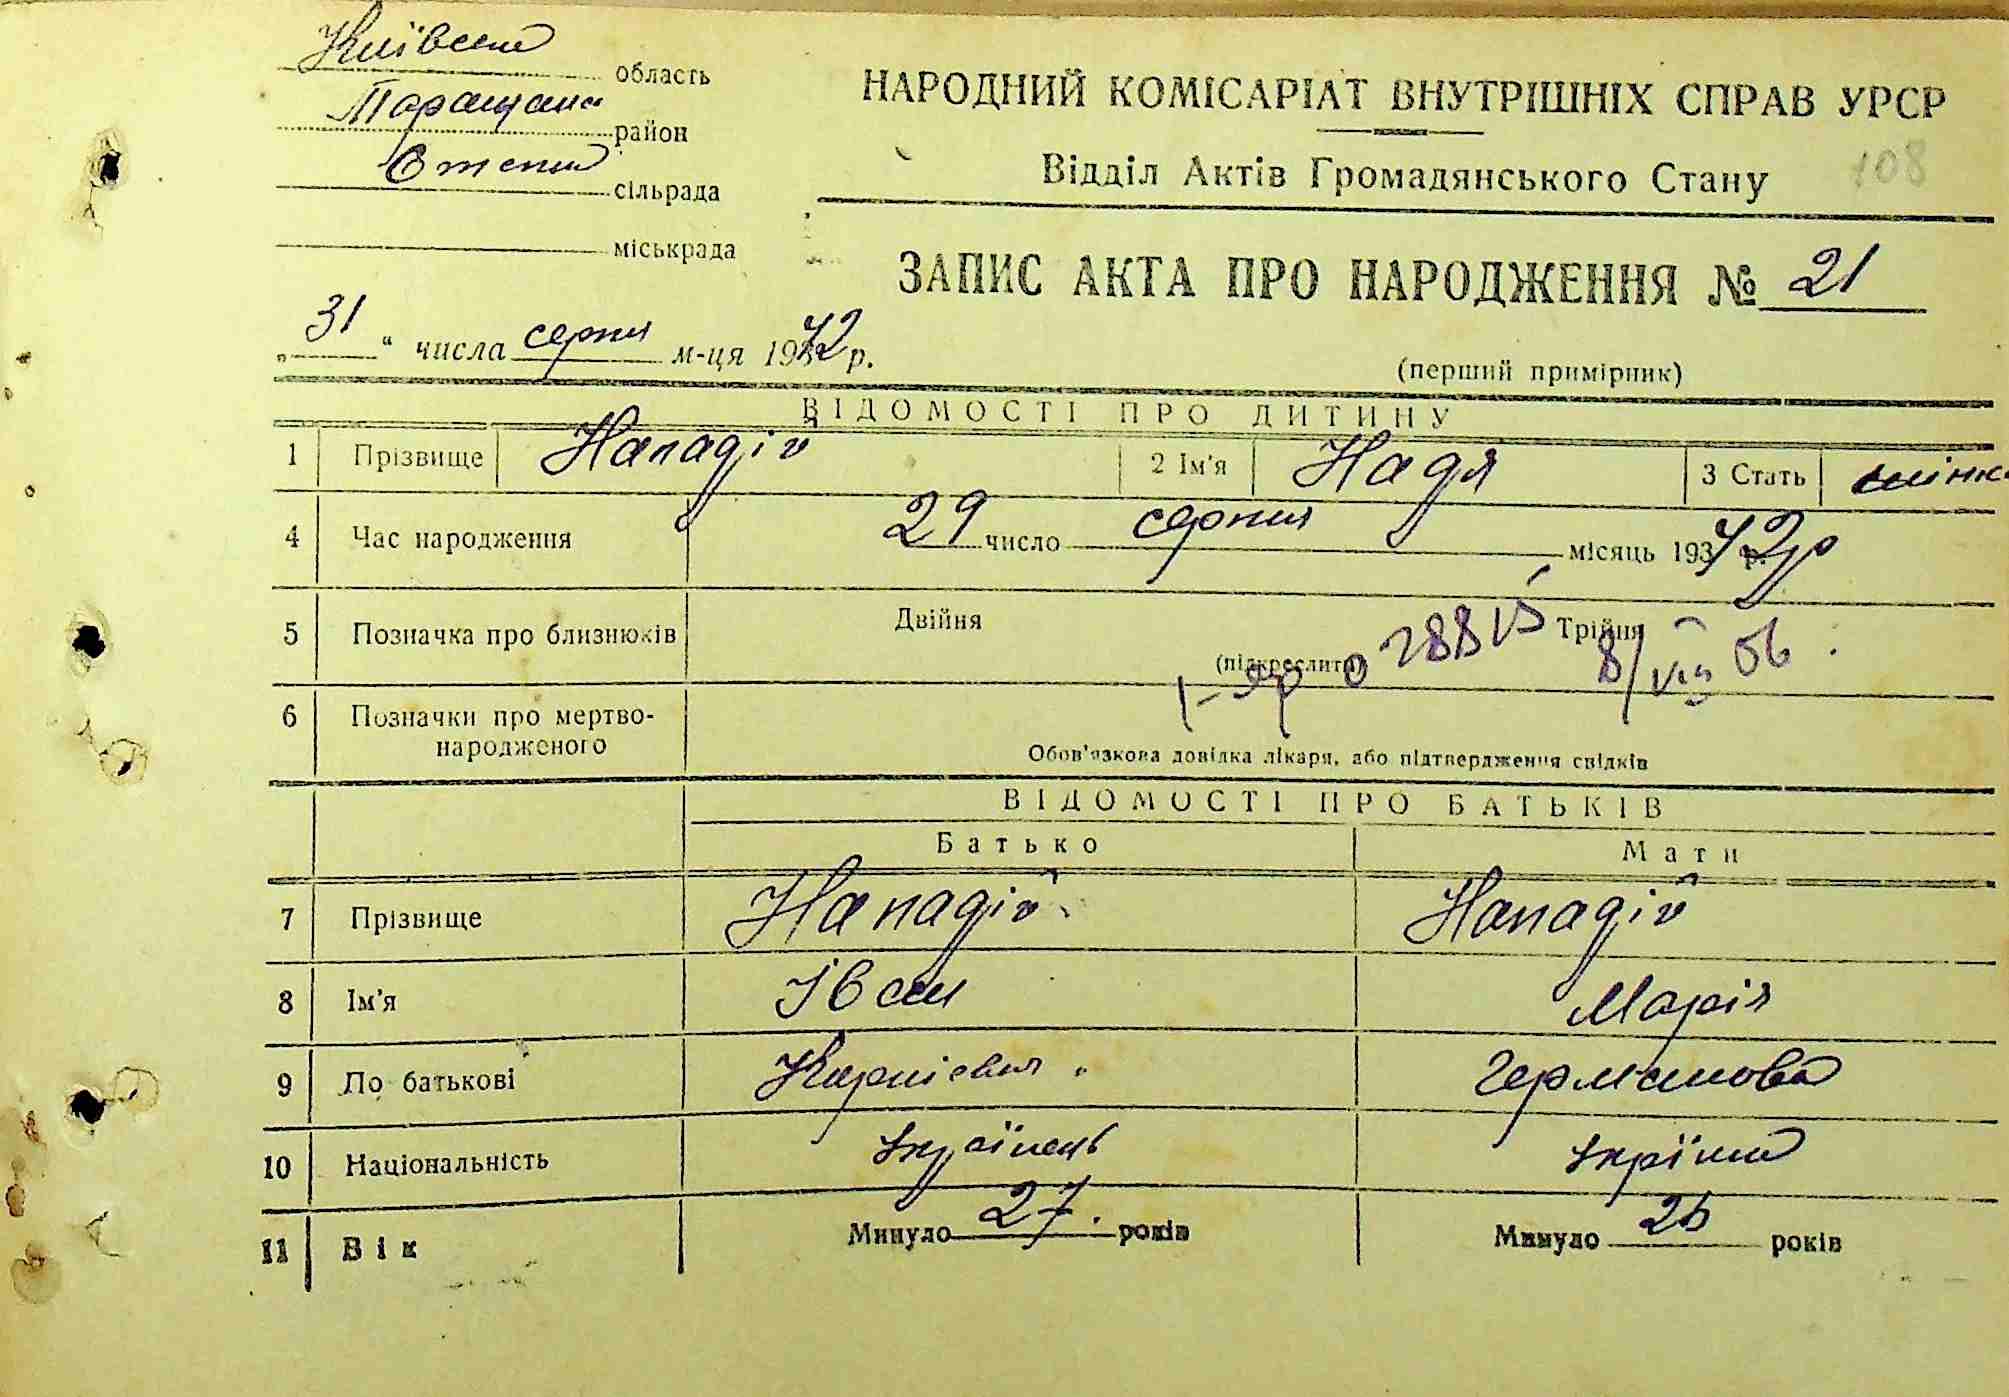 Київська область
Таращанс район
Степк сільрада
міськрада
НАРОДНИЙ КОМІСАРІАТ ВНУТРІШНІХ СПРАВ УРСР
Відділ Актів Громадянського Стану
108
ЗАПИС АКТА ПРО НАРОДЖЕННЯ № 21
„31“ числа серпня м-ця 1942 р.
(перший примірник)
ВІДОМОСТІ ПРО ДИТИНУ
1 Прізвище Нападій 2 Ім'я Надя 3 Стать жінка
4 Час народження 29 число серпня місяць 193 42 р
5 Позначка про близнюків Двійня Трійня
(підкреслити)
288 8/VIII 56
6 Позначки про мертвонародженого
Обов'язкова довідка лікаря, або підтвердження свідків
ВІДОМОСТІ ПРО БАТЬКІВ
Батько Мати
7 Прізвище Нападій Нападій
8 Ім'я Іван Марія
9 По батькові Карпіевич Германова
10 Національність Українець Україн
11 Вік Минуло 27 років Минуло 26 років